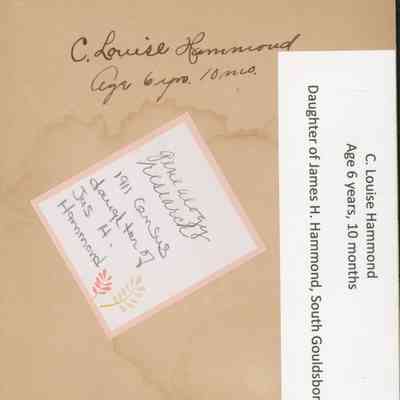 C. Louise Hammond
Age 6 yrs. 10 mo.
genealogy
research
1911 census
daughter of
Jas H.
Hammond
C. Louise Hammond
Age 6 years, 10 months
Daughter of James H. Hammond, South Gouldsbor